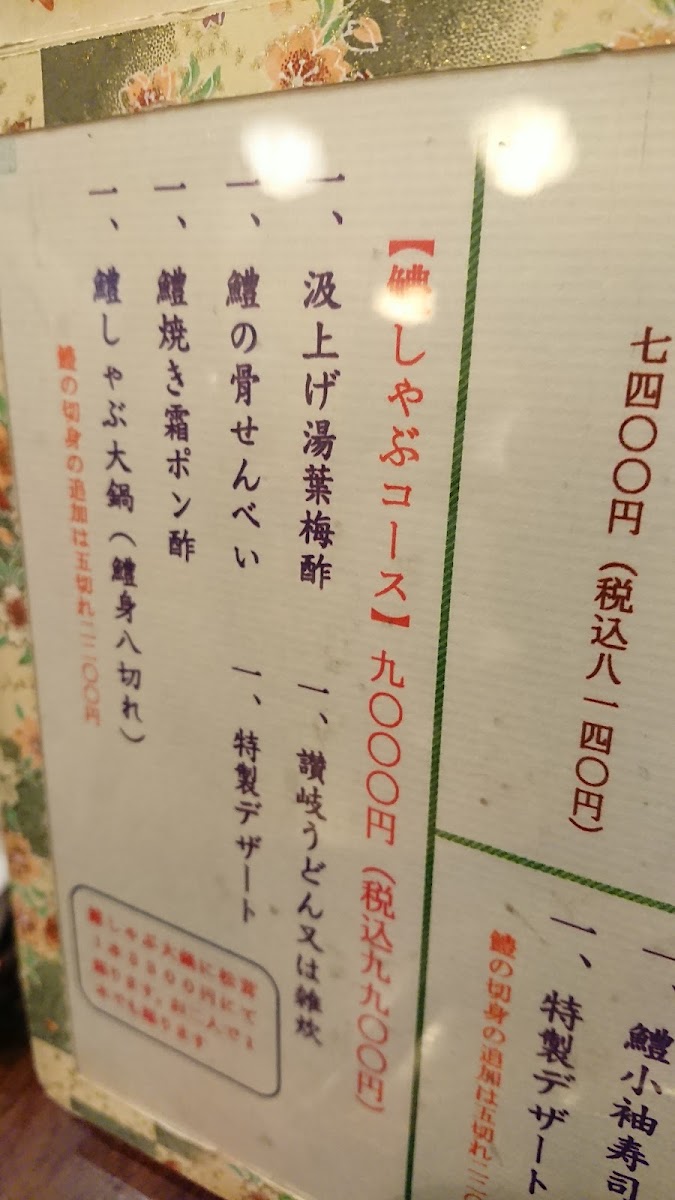 七四〇〇円（税込八一四〇円）
一、鱧小袖寿司
一、特製デザート
鱧の切身の追加は五切れ二二〇
【鱧しゃぶコース】九〇〇〇円（税込九九〇〇円）
一、汲上げ湯葉梅酢
一、鱧の骨せんべい
一、鱧焼き霜ポン酢
一、鱧しゃぶ大鍋（鱧身八切れ）
鱧の切身の追加は五切れ二二〇〇円
一、讃岐うどん又は雑炊
一、特製デザート
鱧しゃぶ大鍋に松茸
1本3300円にて
賜ります。お二人で1
本でも賜ります